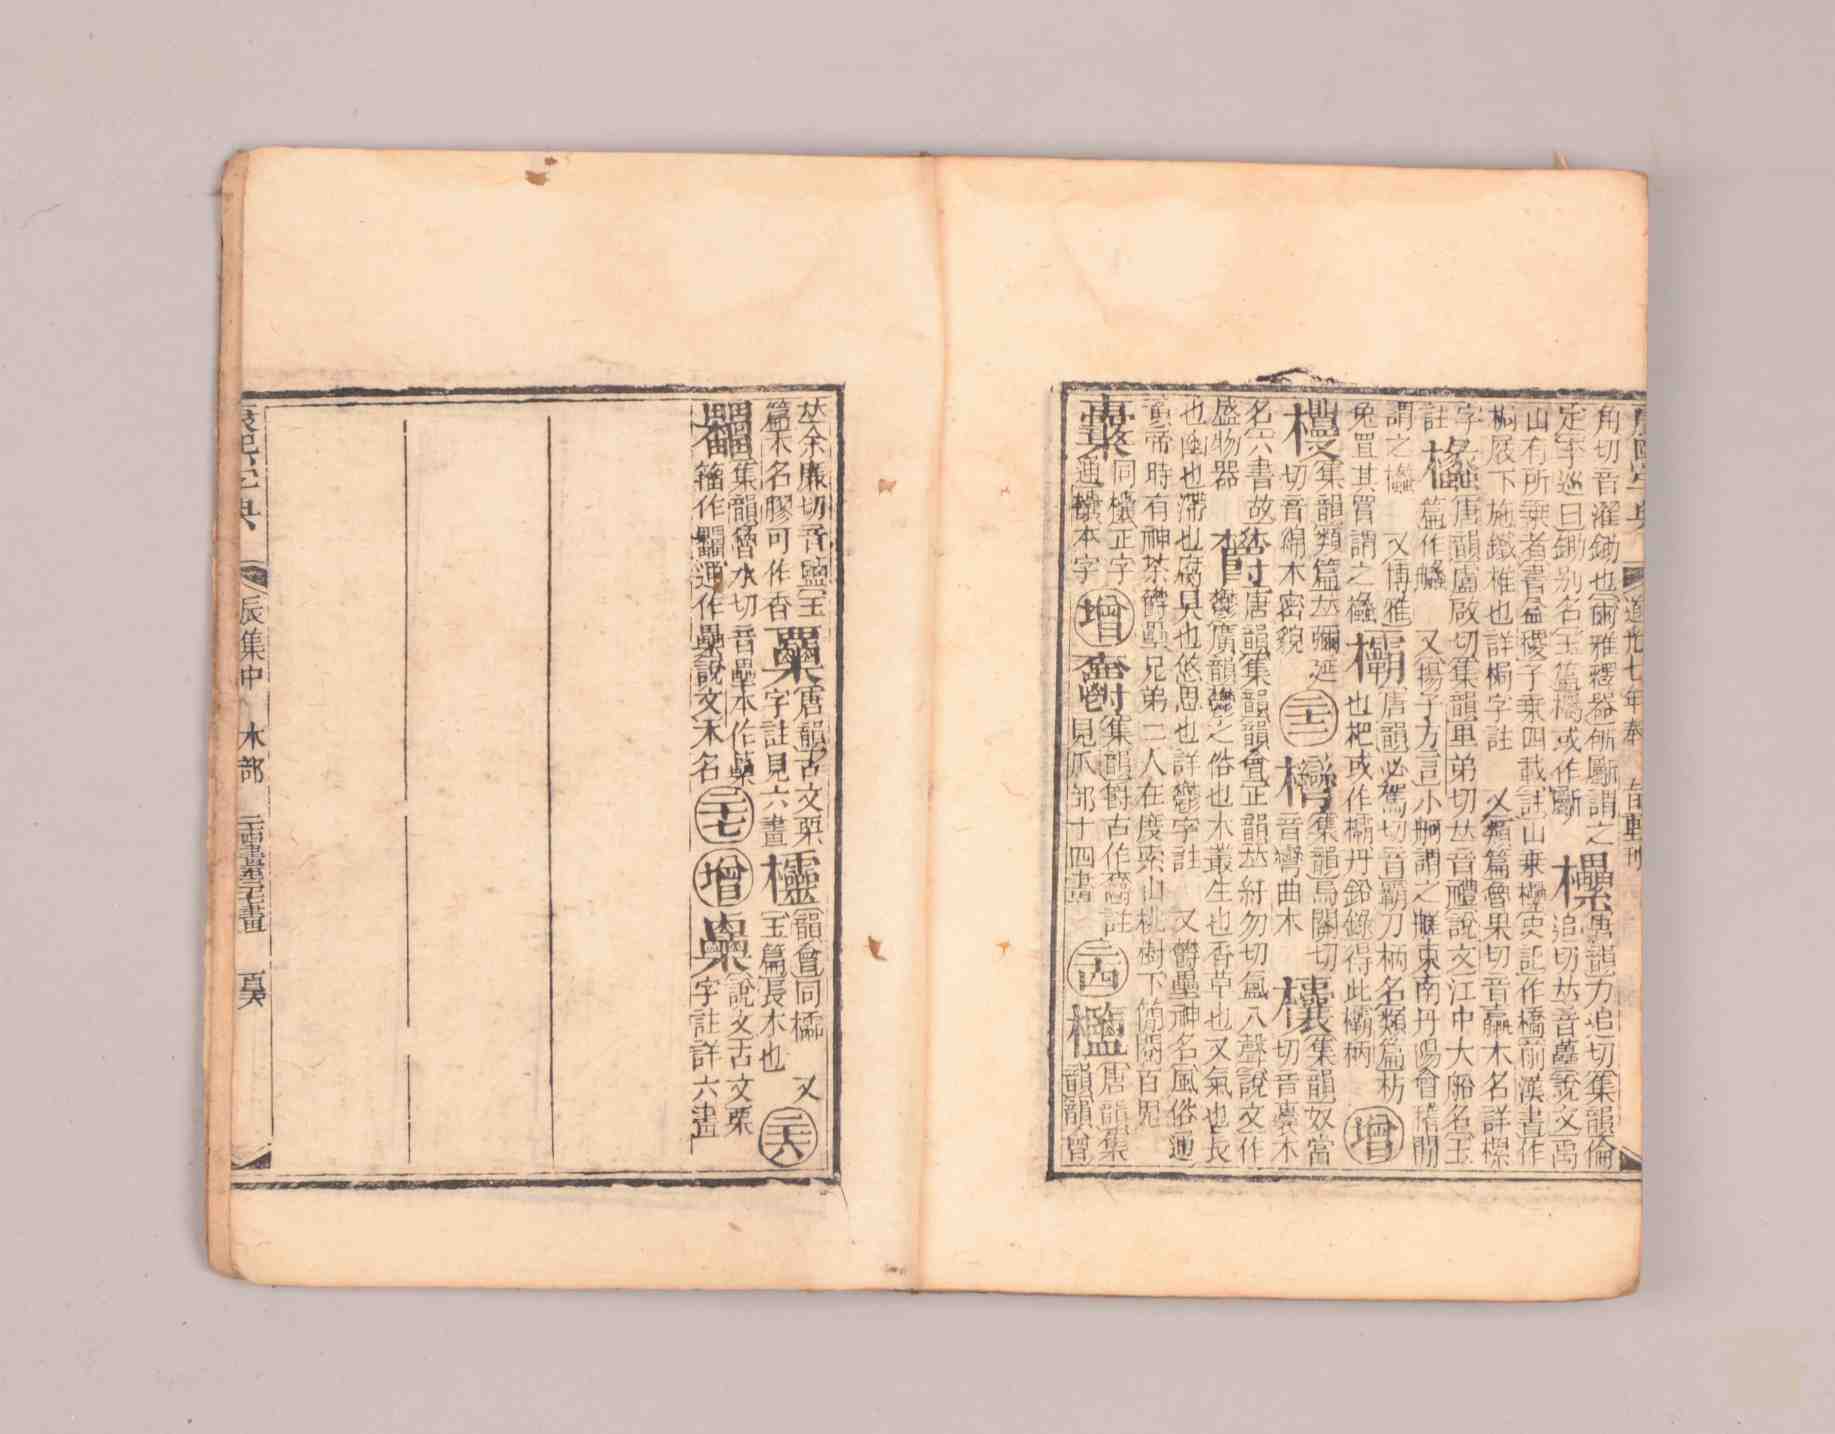 角切音濯鋤也爾雅釋器斫斸謂之
定李巡曰鋤別名玉篇欘或作斸
欙唐韻力追切集韻倫
追切𠀤音虆說文禹
山有所乗者書益稷予乗四載註山乗欙史記作橋前漢書作
梮屐下施鐵椎也詳梮字註 又類篇魯果切音臝木名詳樏
字
欚唐韻盧啟切集韻里弟切𠀤音禮說文江中大船名玉
篇作𦪾 又揚子方言小舸謂之艖東南丹陽會稽閒
謂之欚 又博雅
兔罝其罥謂之欚
欛唐韻必駕切音霸刀柄名類篇枋
也杷或作欛丹鉛錄得此欛柄
增
集韻類篇𠀤彌延
切音綿木密貌
二十三
集韻烏關切
音彎曲木
欜集韻奴當
切音囊木
名六書故
盛物器
欝唐韻集韻韻會正韻𠀤紆勿切氲入聲說文作
鬱廣韻鬱之俗也木叢生也香草也又氣也長
也幽也滯也腐臭也悠思也詳鬱字註 又欝壘神名風俗通
黃帝時有神荼欝壘兄弟二人在度索山桃樹下𥳑閱百鬼
同欜正字
通欜本字
增
集韻爵古作𩰥註
見爪部十四畫
二十四
欕唐韻集
韻韻會
𠀤余廉切音鹽玉
篇木名膠可作香
唐韻古文栗
字註見六畫
欞韻會同櫺
玉篇長木也
又
二十六
集韻魯水切音壘本作藟
籒作𣡺通作壘說文木名
二十七
增
說文古文栗
字註詳六畫
康熙字典 辰集中 木部
道光七年奉 旨重刊